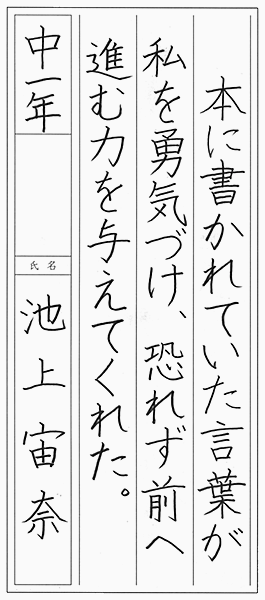 本に書かれていた言葉が
私を勇気づけ、恐れず前へ
進む力を与えてくれた。
中一年
氏名
池上宙奈